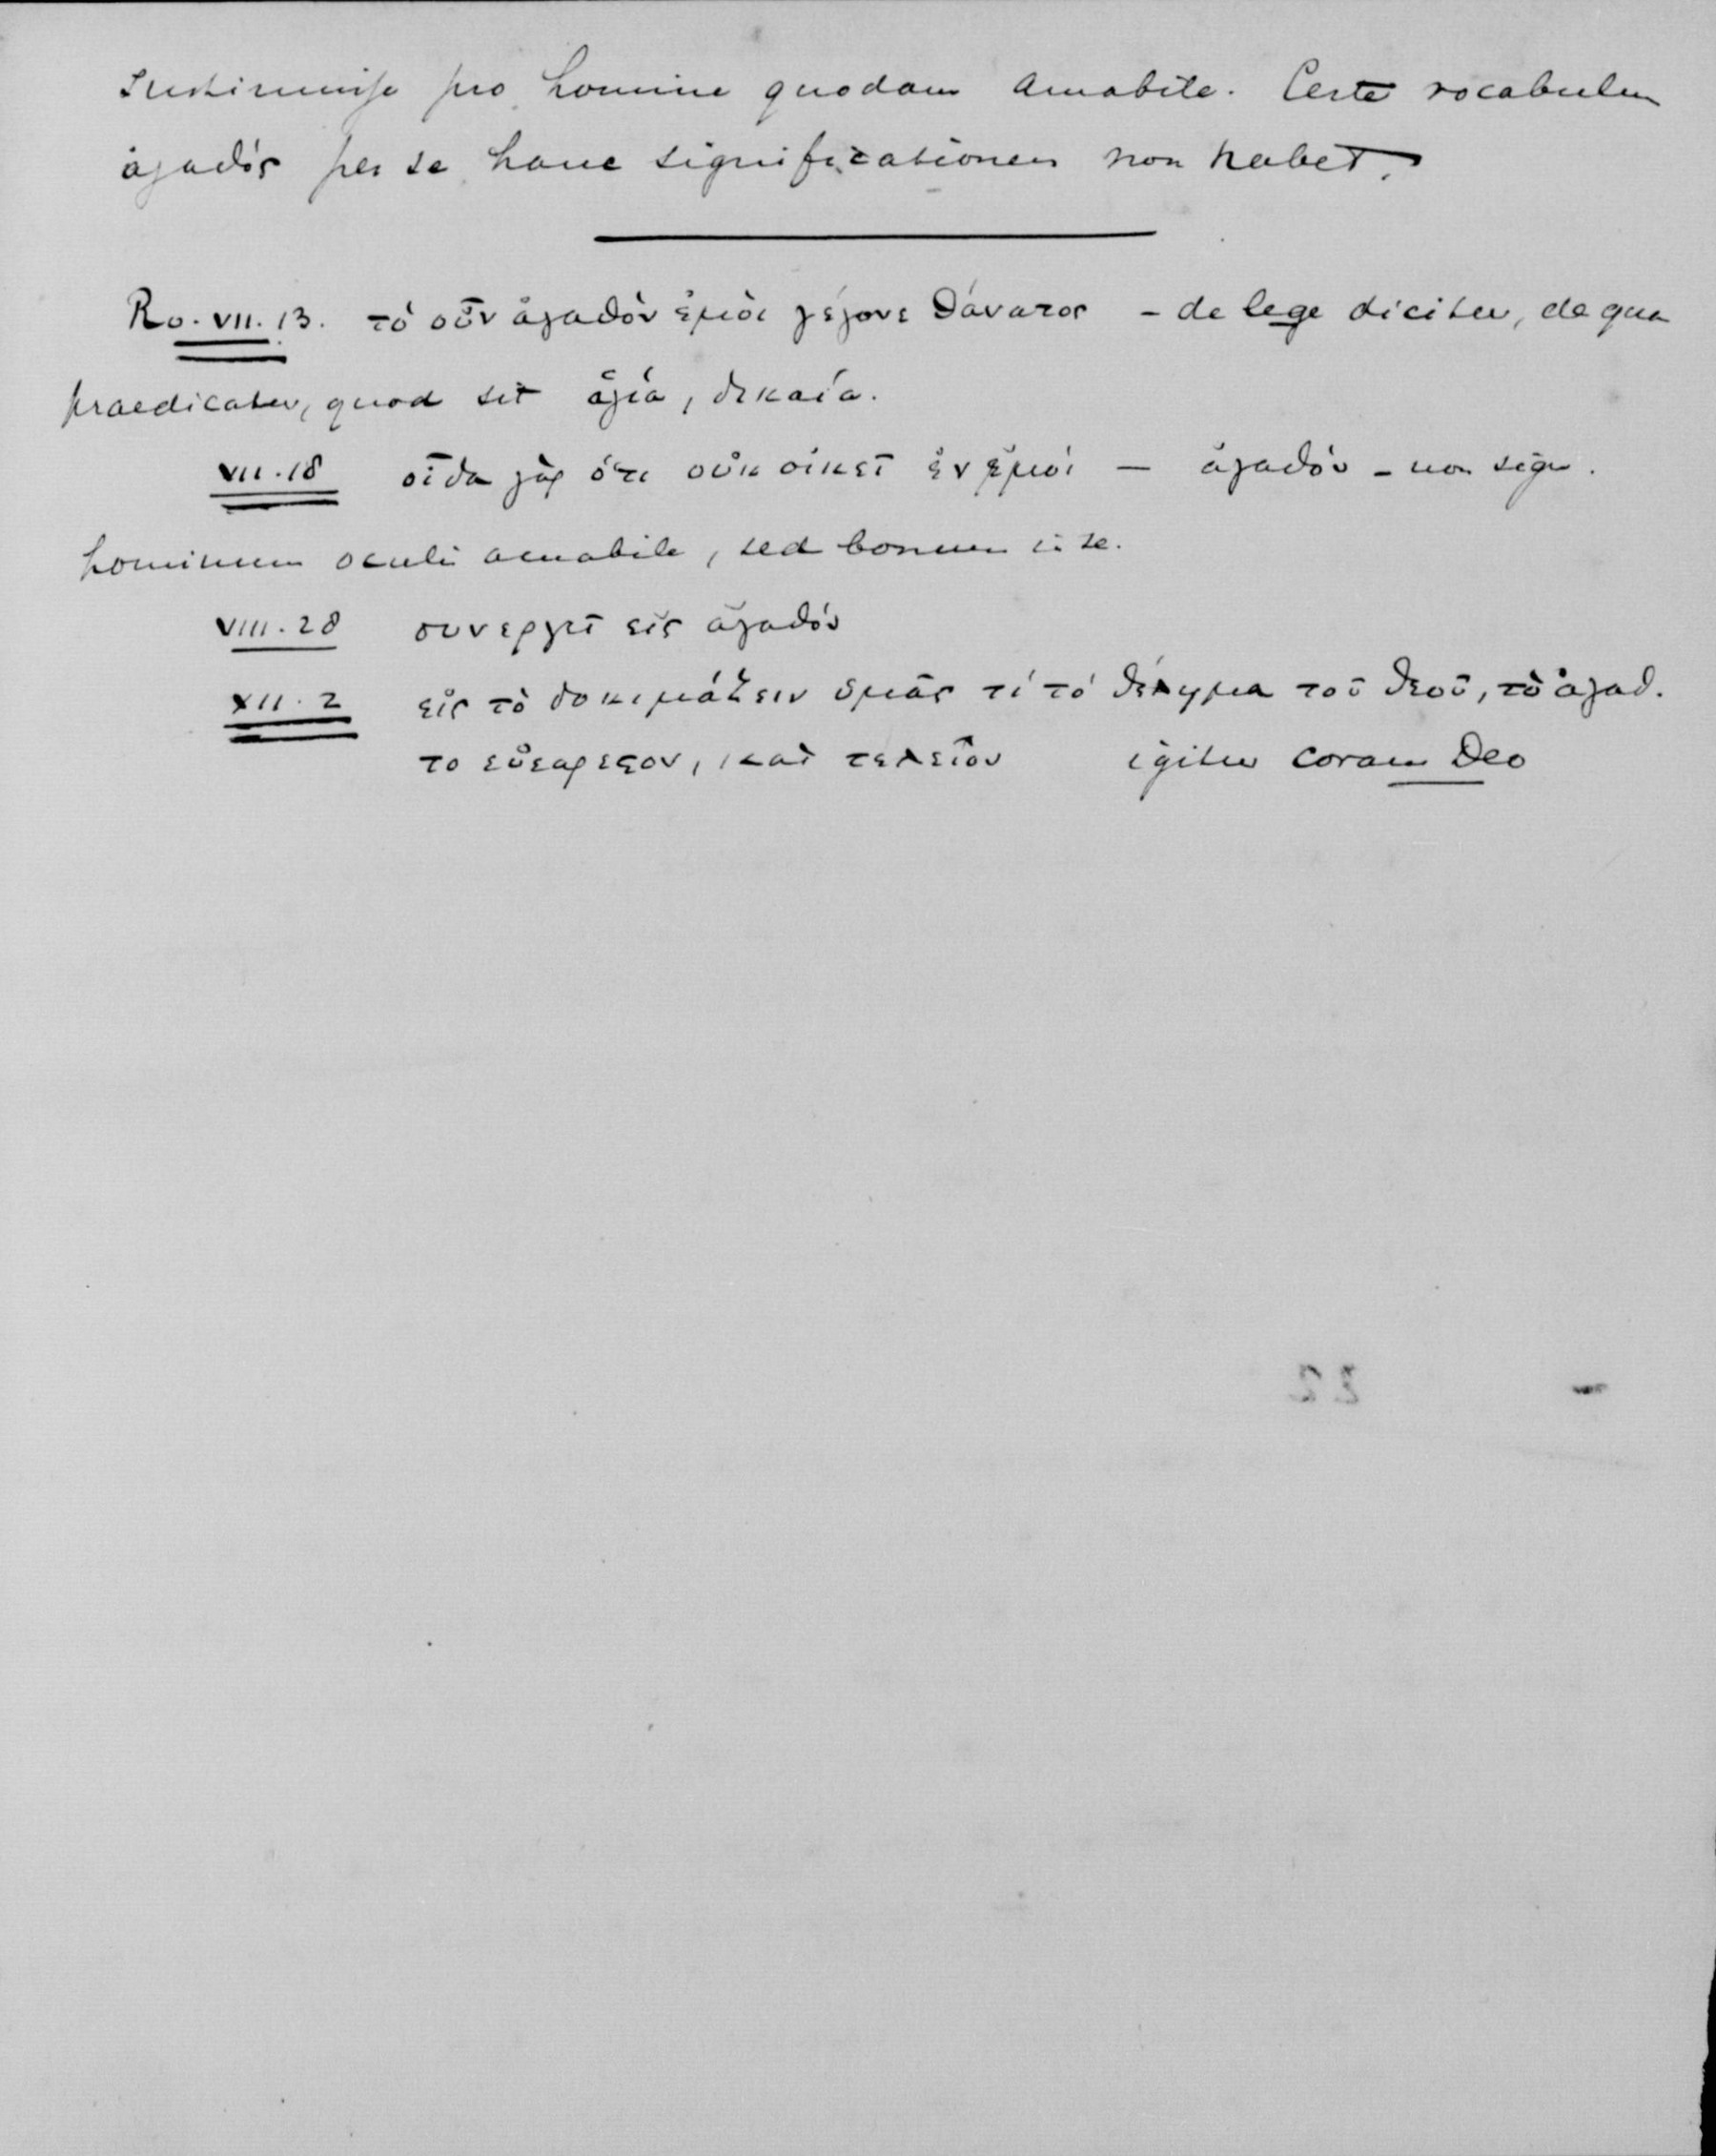 sustinuisse pro homine quodam amabile. Certe vocabulum
ἀγαθός per se hanc significationem non habet.
Ro. VII. 13. τὸ οὖν ἀγαθὸν ἐμοὶ γέγονε θάνατος – de lege dicitur, de qua
praedicatur, quod sit ἁγία, δικαία.
VII. 18 οἶδα γὰρ ὅτι οὐκ οἰκεῖ ἐν ἐμοί – ἀγαθόν – non sign.
hominum oculis amabile, sed bonum in se.
VIII. 28 συνεργεῖ εἰς ἀγαθόν
XII. 2 εἰς τὸ δοκιμάζειν ὑμᾶς τί τὸ θέλημα τοῦ θεοῦ, τὸ ἀγαθ.
το εὐεαρεςον, καὶ τελεῖον igitur coram Deo
22